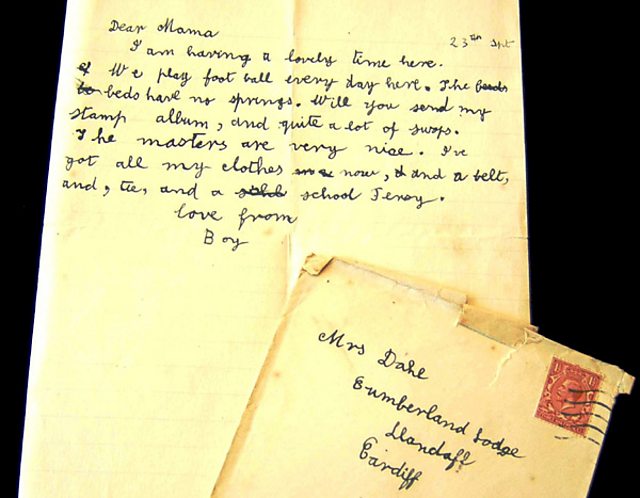 Dear Mama
23rd Spt
I am having a lovely time here.
We play foot ball every day here. The beds
beds have no springs. Will you send my
stamp album, and quite a lot of swops.
The masters are very nice. I've
got all my clothes now, and a belt,
and, tie, and a school Jersy.
love from
Boy
Mrs Dahl
Cumberland Lodge
Llandaff
Cardiff